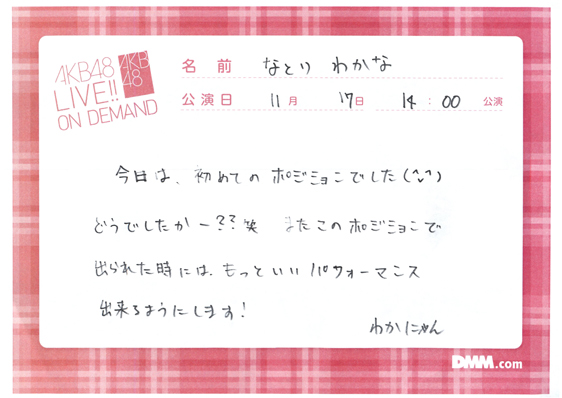 AKB48
LIVE!!
ON DEMAND
AKB
48
名前 なとり わかな
公演日 11月 17日 14:00 公演
今日は、初めてのポジションでした(^-^)
どうでしたかー??笑 またこのポジションで
出られた時には、もっといいパフォーマンス
出来るようにします!
わかにゃん
DMM.com